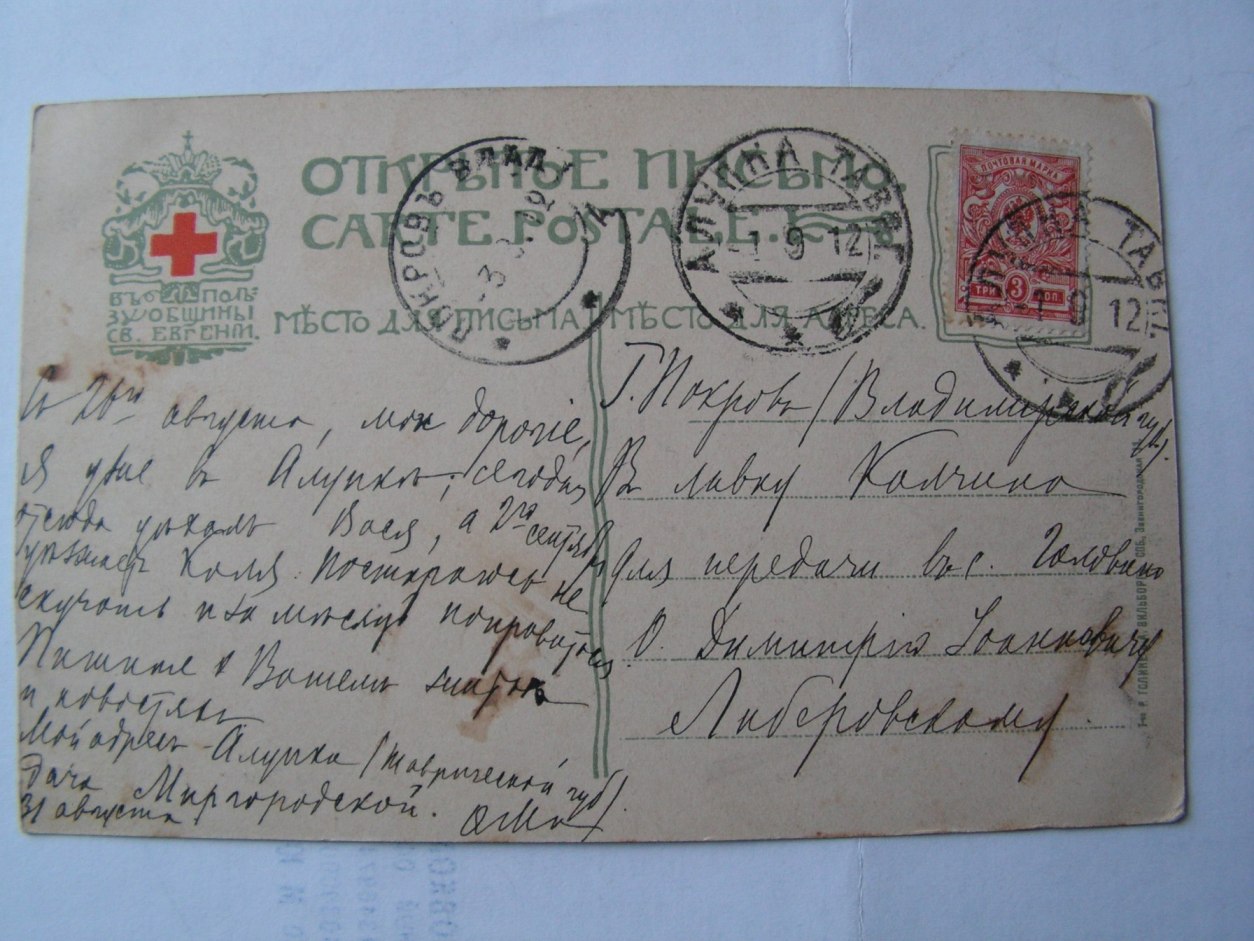 ОТКРЫТОЕ ПИСЬМО.
CARTE POSTALE.
ВЪ ПОЛЬ-
ЗУ ОБЩИНЫ
СВ. ЕВГЕНІИ.
МѢСТО ДЛЯ ПИСЬМА
МѢСТО ДЛЯ АДРЕСА.
ПОКРОВЪ ВЛАД.
АЛУПКА ТАВР.
1 9 12
ПОЧТОВАЯ МАРКА
ТРИ 3 КОП.
АЛУПКА ТАВР.
1 9 12
Съ 26го августа, мои дорогіе,
я уже въ Алупкѣ; сегодня
отсюда уѣхалъ Вася, а 2го сентября
уѣзжаетъ Коля. Постараюсь не
скучать и за мѣсяцъ поправиться.
Пишите о Вашемъ житьѣ
и новостяхъ
Мой адресъ Алупка (Таврической губ).
Дача Миргородской.
31 августа
Г. Покровъ (Владимірской губ).
Въ лавку Колчина
Для передачи въ с. Головино
О. Димитрію Іоанновичу
Либеровскому